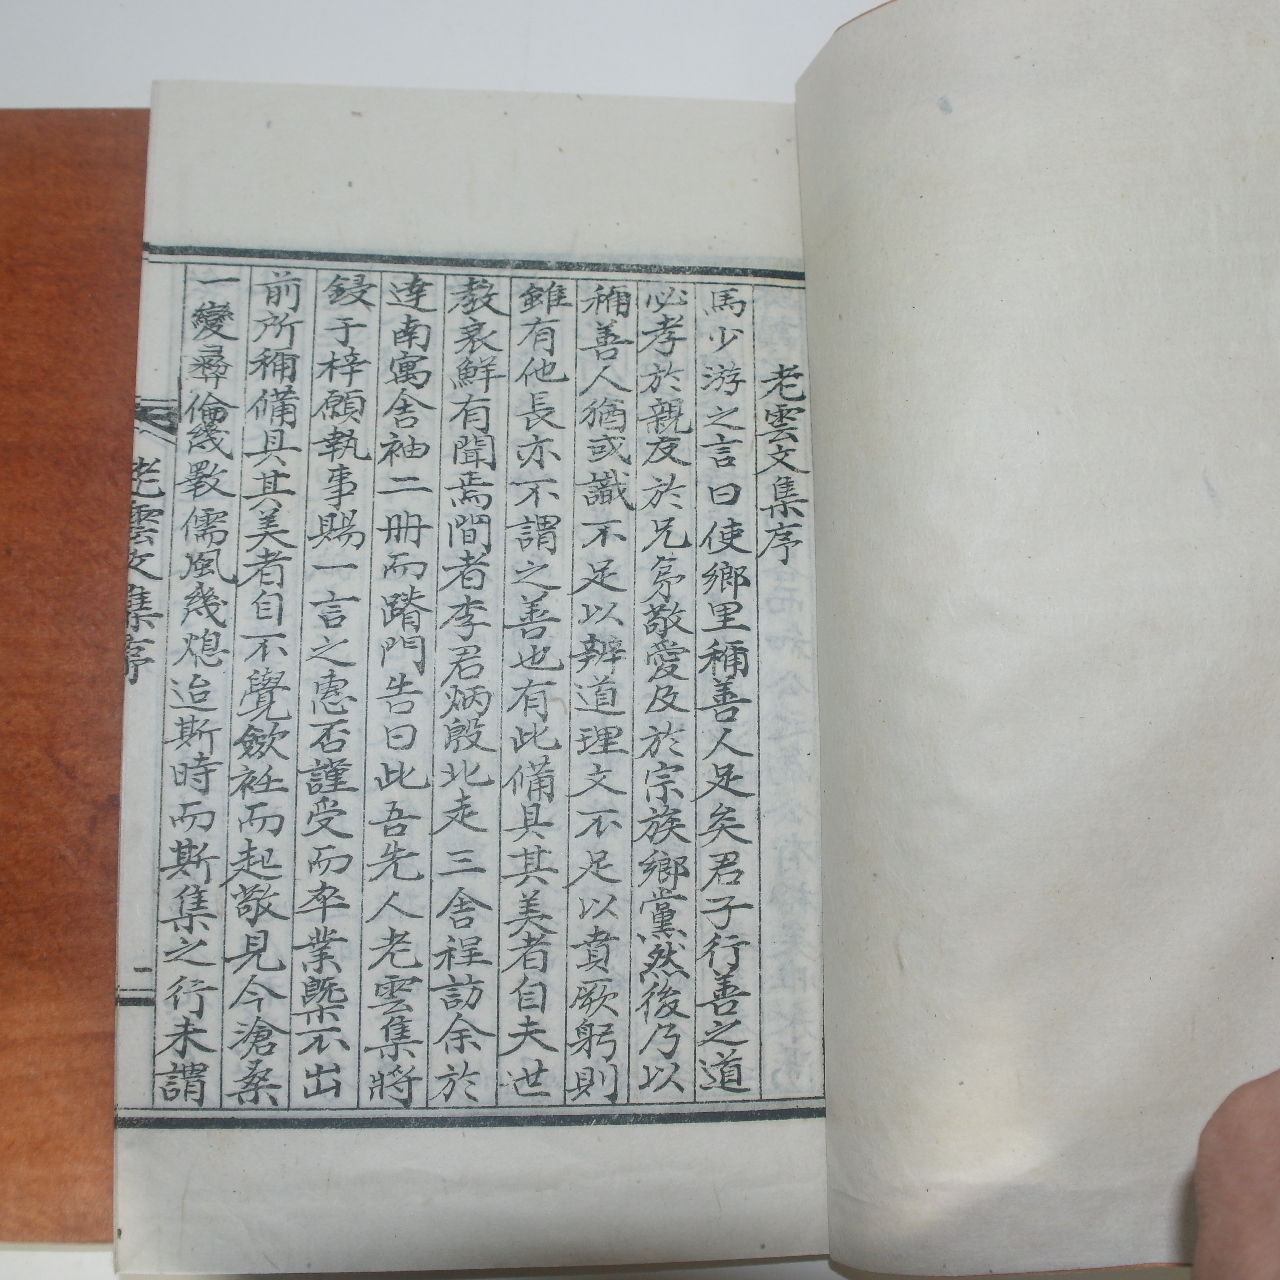 老雲文集序
馬少游之言曰使鄉里稱善人足矣君子行善之道
必孝於親友於兄弟敬愛及於宗族鄉黨然後乃以
稱善人猶或識不足以辨道理文不足以賁厥躬則
雖有他長亦不謂之善也有此備具其美者自夫世
教衰鮮有聞焉間者李君炳殷北走三舍程訪余於
達南寓舍袖二册而踏門告曰此吾先人老雲集將
鋟于梓願執事賜一言之惠否謹受而卒業槩不出
前所稱備具其美者自不覺斂衽而起敬見今滄桑
一變彛倫幾斁儒風幾熄迨斯時而斯集之行未謂
老雲文集序
二